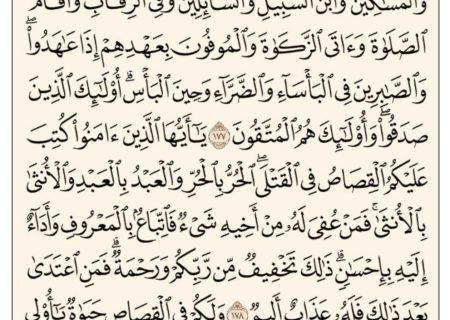 وَالْمَسَـٰكِينَ وَابْنَ السَّبِيلِ وَالسَّآئِلِينَ وَفِى الرِّقَابِ وَأَقَامَ
الصَّلَوٰةَ وَءَاتَى الزَّكَوٰةَ وَالْمُوفُونَ بِعَهْدِهِمْ إِذَا عَـٰهَدُوا۟ ۖ
وَالصَّـٰبِرِينَ فِى الْبَأْسَآءِ وَالضَّرَّآءِ وَحِينَ الْبَأْسِ ۗ أُو۟لَـٰٓئِكَ الَّذِينَ
صَدَقُوا۟ ۖ وَأُو۟لَـٰٓئِكَ هُمُ الْمُتَّقُونَ ١٧٧ يَـٰٓأَيُّهَا الَّذِينَ ءَامَنُوا۟ كُتِبَ
عَلَيْكُمُ الْقِصَاصُ فِى الْقَتْلَى ۖ الْحُرُّ بِالْحُرِّ وَالْعَبْدُ بِالْعَبْدِ وَالْأُنثَىٰ
بِالْأُنثَىٰ ۚ فَمَنْ عُفِىَ لَهُۥ مِنْ أَخِيهِ شَىْءٌ فَاتِّبَاعٌۢ بِالْمَعْرُوفِ وَأَدَآءٌ
إِلَيْهِ بِإِحْسَـٰنٍ ۗ ذَٰلِكَ تَخْفِيفٌ مِّن رَّبِّكُمْ وَرَحْمَةٌ ۗ فَمَنِ اعْتَدَىٰ
بَعْدَ ذَٰلِكَ فَلَهُۥ عَذَابٌ أَلِيمٌ ١٧٨ وَلَكُمْ فِى الْقِصَاصِ حَيَوٰةٌ يَـٰٓأُو۟لِى